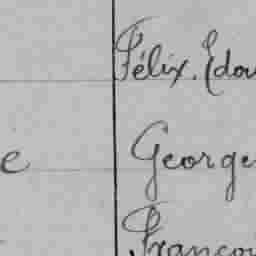 Félix, Edou
e George
Françoi